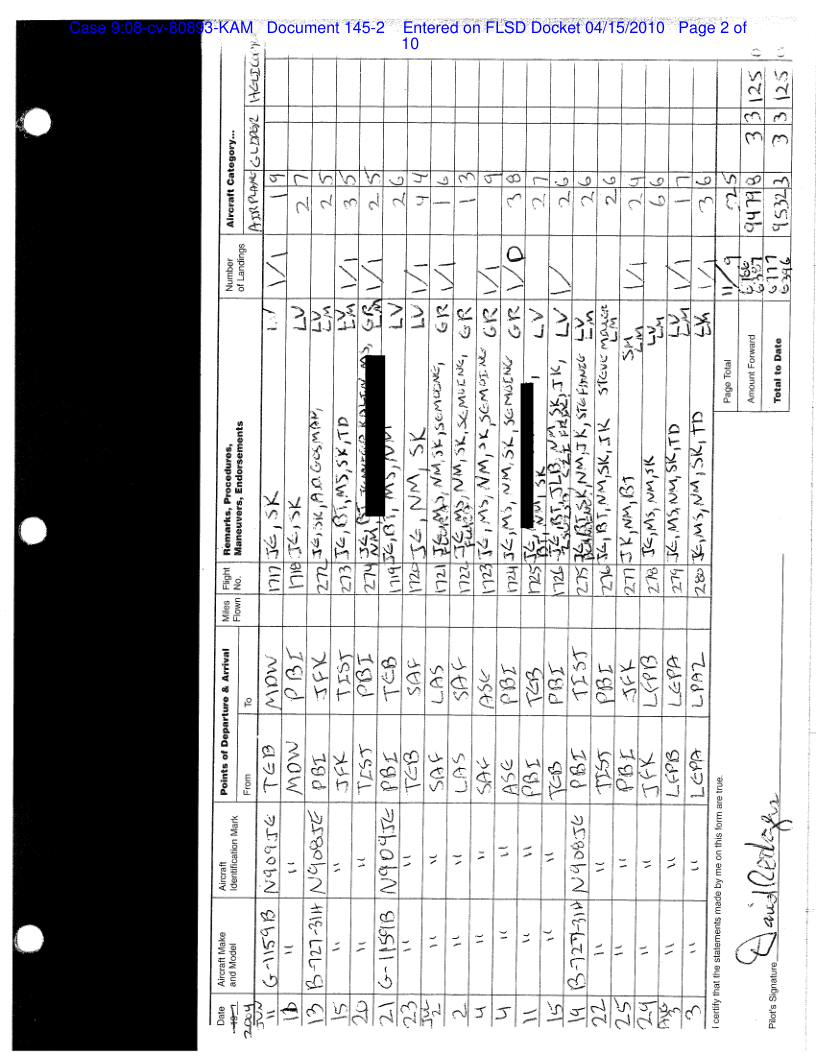 Case 9:08-cv-80893-KAM Document 145-2 Entered on FLSD Docket 04/15/2010 Page 2 of 10
Date 2004 Aircraft Make and Model Aircraft Identification Mark Points of Departure & Arrival From To Miles Flown Flight No. Remarks, Procedures, Maneuvers, Endorsements Number of Landings Aircraft Category... AIRPLANE GLIDER
JUN 11 G-1159B N909JE TEB MDW 1717 JE, SK 1/1 1 9
" " MDW PBI 1718 JE, SK LV 2 7
13 B-727-31H N908JE PBI JFK 272 JE, SK, LV LM 2 5
15 " " JFK TIST 273 JE, BT, MS, SK, TD LV LM 1/1 3 5
20 " " TIST PBI 274 JE, BT, MS, NM, GR LM 1/1 2 5
21 G-1159B N909JE PBI TEB 1719 JE, BT, MS, NM LV 2 6
23 " " TEB SAF 1720 JE, NM, SK LV 1/1 4 4
JUL 2 " " SAF LAS 1721 MS, NM, SK, GR 1/1 1 6
2 " " LAS SAF 1722 JE, MS, NM, SK, GR 1 3
4 " " SAF ASE 1723 JE, MS, NM, SK, GR 1/1 9
4 " " ASE PBI 1724 JE, MS, NM, SK, GR 1/D 3 8
11 " " PBI TEB 1725 JE, BT, NM, SK LV 2 7
15 " " TEB PBI 1726 JE, BT, JLB, NM, SK, JK, LV 1/ 2 6
14 B-727-31H N908JE PBI TIST 275 SK, NM, JK, LV LM 2 6
22 " " TIST PBI 276 JE, BT, NM, SK, JK STEVE LM 2 6
25 " " PBI JFK 277 JK, NM, BT LM 1/1 2 4
29 " " JFK LFPB 278 JE, MS, NM, SK LV LM 6 6
AUG 3 " " LFPB LEPA 279 JE, MS, NM, SK, TD LV LM 1/1 1 7
3 " " LEPA LPAZ 280 JE, MS, NM, SK, TD LM 1/1 3 6
I certify that the statements made by me on this form are true.
Page Total 11/9
Amount Forward 9479 8 3 3 125
Total to Date 6177 6396 9532 3 3 3 125
Pilot's Signature